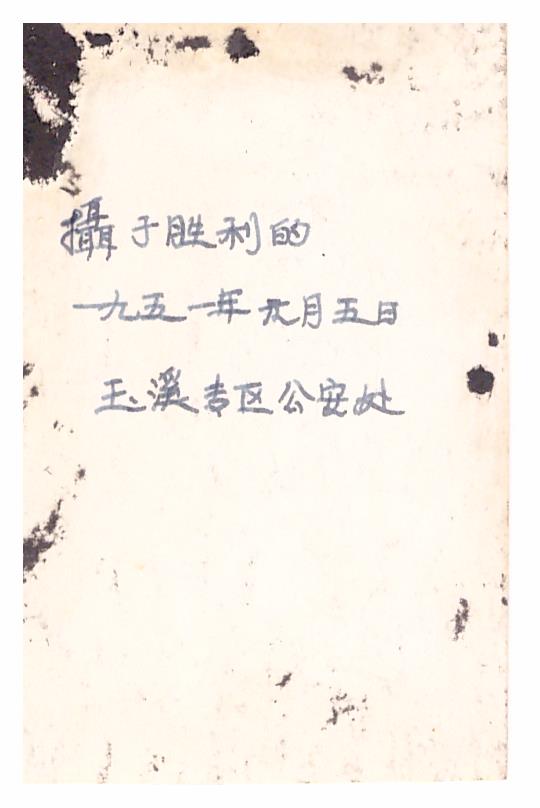 攝于胜利的
一九五一年元月五日
玉溪专区公安处